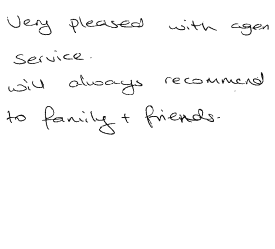 Very pleased with agen
service.
will always recommend
to family + friends.